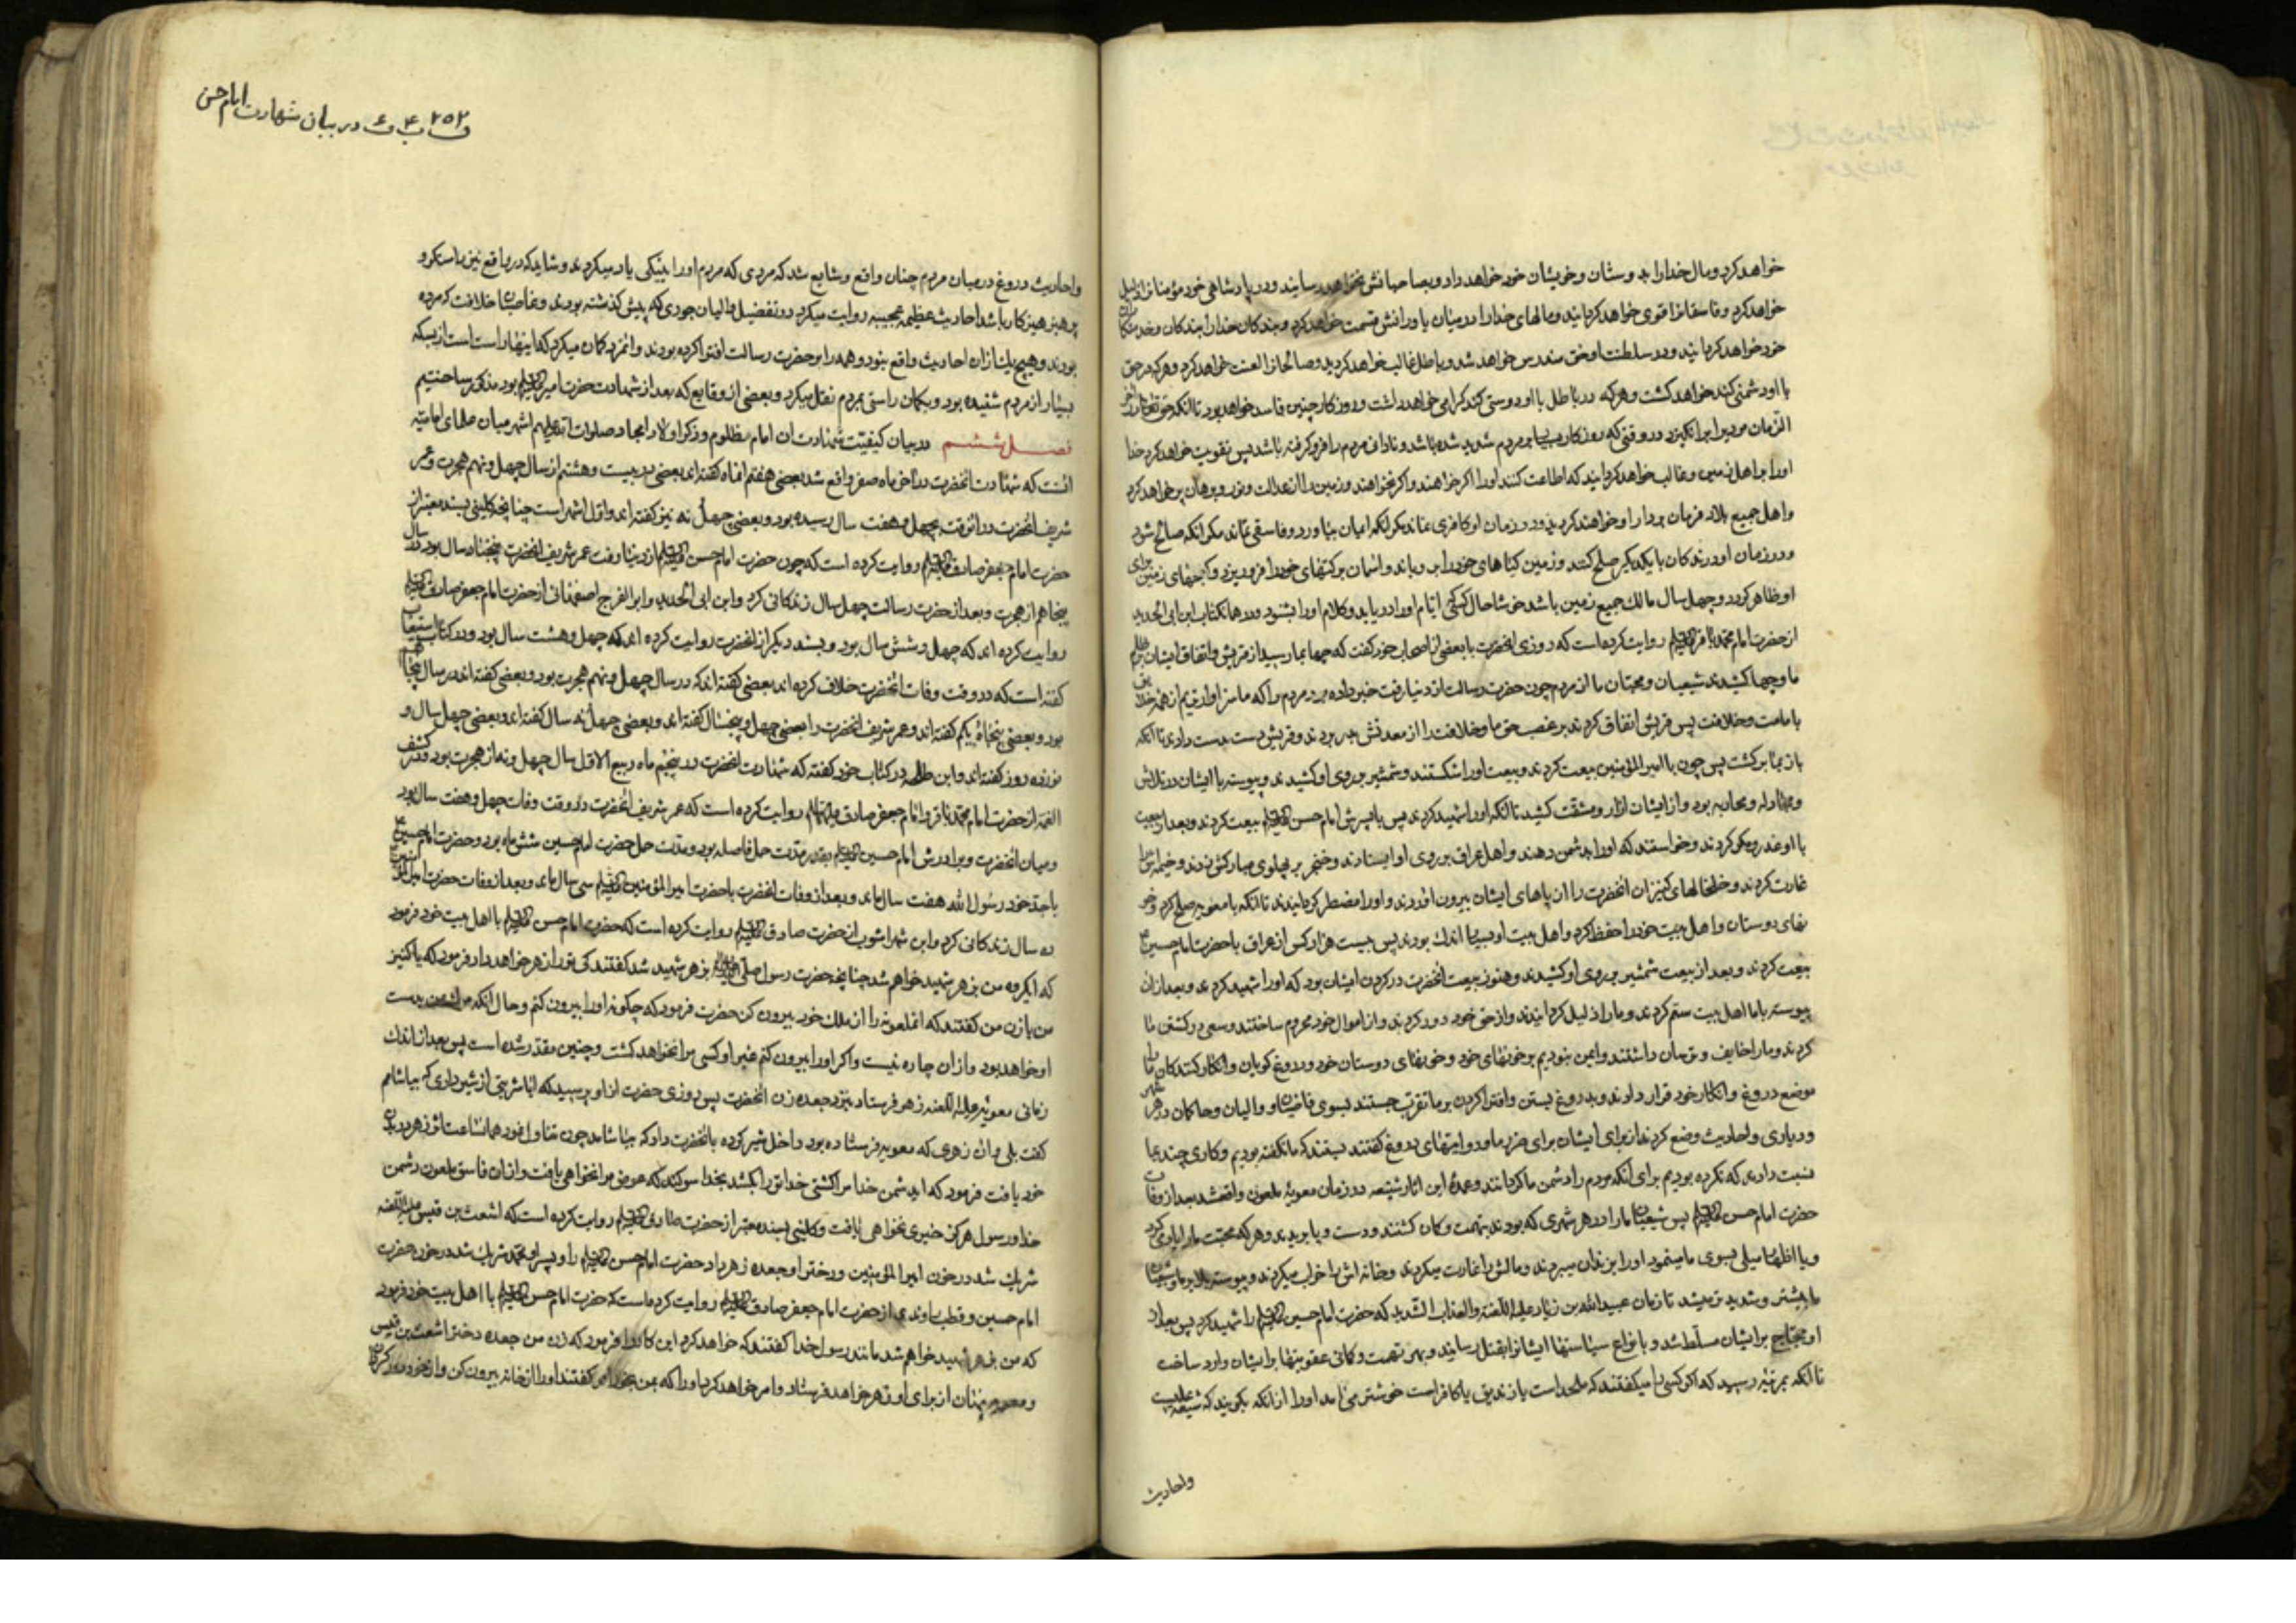 خواهد کرد و مال خدا را بدوستان و خویشان خود خواهد داد و بصاحبانش نخواهد رسانید و در پادشاهی خود مؤمنانرا ذلیل
خواهد کرد و فاسقانرا قوی خواهد کردانید و مالهای خدا را در میان یاورانش قسمت خواهد کرد و بندکان خدا را بندکان و خدمتکاران
خود خواهد کردانید و در سلطنت او حق مندرس خواهد شد و باطل غالب خواهد کردید و صالحانرا لعنت خواهد کرد و هر که در حق
با او دشمنی کند خواهد کشت و هر که در باطل با او دوستی کند کرامی خواهد داشت و روزکار چنین فاسد خواهد بود تا آنکه حق تعالی در آخر
الزمان مردیرا برانکیزد در وقتی که روزکار بسیار بر مردم شدید شده باشد و نادانی مردم را فرو کرفته باشد پس تقویت خواهد کرد خدا
او را بر اهل زمین و غالب خواهد کردانید که اطاعت کنند او را اکر خواهند و اکر نخواهند و زمین را از عدالت و نور و برهان پر خواهد کرد
و اهل جمیع بلاد فرمان بردار او خواهند کردید و در زمان او کافری نماند مکر آنکه ایمان بیاورد و فاسقی نماند مکر آنکه صالح شود
و در زمان او درندکان با یکدیکر صلح کنند و زمین کیاهای خود را برویاند و آسمان برکتهای خود را فرو ریزد و کنجهای زمین برای
او ظاهر کردد و چهل سال مالک جمیع زمین باشد خوشا حال کسی که ایام او را دریابد و کلام او را بشنود و در همان کتاب ابن ابی الحدید
از حضرت امام محمد باقر علیه السلام روایت کرده است که روزی آنحضرت با بعضی از اصحاب خود کفت که چها بما رسید از قریش و اتفاق ایشان بر ظلم
ما و چها کشیدند شیعیان و محبان ما از مردم چون حضرت رسالت از دنیا رفت خبر داده بود مردم را که ما سزاوارتریم از همه خلایق
بامامت و خلافت پس قریش اتفاق کردند بر غصب حق ما و خلافت را از معدنش بدر بردند و قریش دست بدست دادند تا آنکه
باز بما برکشت پس چون با امیر المؤمنین بیعت کردند و بیعت او را شکستند و شمشیر بر روی او کشیدند و پیوسته با ایشان در تلاش
و مجادله و محاربه بود و از ایشان آزار و مشقت کشید تا آنکه او را شهید کردند پس با پسرش امام حسن علیه السلام بیعت کردند و بعد از بیعت
با او غدر و مکر کردند و خواستند که او را بدشمن دهند و اهل عراق بر روی او ایستادند و خنجر بر پهلوی مبارکش زدند و خیمه اش را
غارت کردند و خلخالهای کنیزان آنحضرت را از پاهای ایشان بیرون آوردند و او را مضطر کردانیدند تا آنکه با معویه صلح کرد و خو
نهای دوستان و اهل بیت خود را حفظ کرد و اهل بیت او بسیار اندک بودند پس بیست هزار کس از عراق با حضرت امام حسین ع
بیعت کردند و بعد از بیعت شمشیر بر روی او کشیدند و هنوز بیعت آنحضرت در کردن ایشان بود که او را شهید کردند و بعد از آن
پیوسته با ما اهل بیت ستم کردند و ما را ذلیل کردانیدند و از حق خود دور کردند و از اموال خود محروم ساختند و سعی در کشتن ما
کردند و ما را خایف و ترسان داشتند و ایمن نبودیم بر خونهای خود و خونهای دوستان خود و دروغ کویان و انکار کنندکان ما را
موضع دروغ و انکار خود قرار دادند و بدروغ بستن و افترا کردن بر ما تقرب جستند بسوی قاضیان و والیان و حاکمان در هر شهر
و دیاری و احادیث وضع کردند از برای ایشان برای ضرر ما و روایتهای دروغ کفتند بستند که ما نکفته بودیم و کاری چند بما
نسبت دادند که نکرده بودیم برای آنکه مردم را دشمن ما کردانند و عمدهٔ این آثار شنیعه در زمان معویهٔ ملعون واقع شد بعد از وفات
حضرت امام حسن علیه السلام پس شیعیان ما را در هر شهری که بودند بتهمت و کمان کشتند و دست و پا بریدند و هر که محبت ما را یاد میکرد
و یا اظهار میلی بسوی ما مینمود او را بزندان میبردند و مالش را غارت میکردند و خانه اش را خراب میکردند و پیوسته بلا بر ما و شیعیان
ما بیشتر و شدیدتر میشد تا زمان عبیدالله بن زیاد علیه اللعنة والعذاب الشدید که حضرت امام حسین علیه السلام را شهید کرد پس بعد از
او حجاج بر ایشان مسلط شد و بانواع سیاستها ایشانرا بقتل رسانید و بهر تهمت و کمانی عقوبتها بر ایشان وارد ساخت
تا آنکه بمرتبه رسید که اکر کسی را میکفتند که ملحد است یا زندیق یا کافر است خوشتر می آمد او را از آنکه بکویند که شیعهٔ علیست
واحادیث
۲۵۲ ف ب ۴ ف ۶ در بیان شهادت امام حسن
واحادیث دروغ در میان مردم چنان واقع و شایع شد که مردی که مردم او را بنیکی یاد میکردند و شاید که در واقع نیز راستکو و
پرهیزکار باشد احادیث عظیمه عجیبه روایت میکرد در تفضیل والیان جوری که پیش کذشته بودند و غاصبان خلافت که مرده
بودند و هیچ یک از آن احادیث واقع نبود و همه را بر حضرت رسالت افترا کرده بودند و آنمرد کمان میکرد که اینها راست است از بسکه
بسیار از مردم شنیده بود و بکمان راستی بمردم نقل میکرد و بعضی از وقایع که بعد از شهادت حضرت امیر علیه السلام بود مذکور ساختیم
فصل ششم در بیان کیفیت شهادت آن امام مظلوم و ذکر اولاد امجاد صلوات الله علیهم اشهر میان علمای امامیه
آنست که شهادت آنحضرت در آخر ماه صفر واقع شد بعضی هفتم آنماه کفته اند بعضی در بیست و هشتم از سال چهل و نهم هجرت و عمر
شریف آنحضرت در آنوقت بچهل و هفت سال رسیده بود و بعضی چهل نه نیز کفته اند و اول اشهر است چنانچه کلینی بسند معتبر از
حضرت امام جعفر صادق علیه السلام روایت کرده است که چون حضرت امام حسن علیه السلام از دنیا رفت عمر شریف آنحضرت چهل و هفت سال بود در سال
پنجاهم از هجرت و بعد از حضرت رسالت چهل سال زندکانی کرد و ابن ابی الحدید و ابو الفرج اصفهانی از حضرت امام جعفر صادق علیه السلام
روایت کرده اند که چهل و شش سال بود و بسند دیکر از آنحضرت روایت کرده اند که چهل و هشت سال بود و در کتاب استیعاب
کفته است که در وقت وفات آنحضرت خلاف کرده اند بعضی کفته اند که در سال چهل و نهم هجرت بود و بعضی کفته اند در سال پنجاهم
بود و بعضی پنجاه و یکم کفته اند و عمر شریف آنحضرت را بعضی چهل و پنجسال کفته اند و بعضی چهل نه سال کفته اند و بعضی چهل سال و
نوزده روز کفته اند و ابن طلحه در کتاب خود کفته که شهادت آنحضرت در پنجم ماه ربیع الاول سال چهل و نه از هجرت بود و در کشف
الغمه از حضرت امام محمد باقر و امام جعفر صادق علیهما السلام روایت کرده است که عمر شریف آنحضرت در وقت وفات چهل و هفت سال بود
و میان آنحضرت و برادرش امام حسین علیه السلام بقدر مدت حمل فاصله بود و مدت حمل حضرت امام حسین شش ماه بود و حضرت امام حسین ع
با جد خود رسول الله هفت سال ماند و بعد از وفات آنحضرت با حضرت امیر المؤمنین علیه السلام سی سال ماند و بعد از وفات حضرت امیر المؤمنین
ده سال زندکانی کرد و ابن شهراشوب از حضرت صادق علیه السلام روایت کرده است که حضرت امام حسن علیه السلام با اهل بیت خود فرمود
که ایکروه من بزهر شهید خواهم شد چنانچه حضرت رسول صلی الله علیه وآله بزهر شهید شد کفتند کی ترا زهر خواهد داد فرمود که یا کنیز
من یا زن من کفتند که آنملعونه را از ملک خود بیرون کن حضرت فرمود که چکونه او را بیرون کنم و حال آنکه مردن من بدست
او خواهد بود و از آن چاره نیست و اکر او را بیرون کنم غیر او کسی مرا نخواهد کشت و چنین مقدر شده است پس بعد از اندک
زمانی معویه علیه اللعنه زهر فرستاد بنزد جعده زن آنحضرت پس روزی حضرت از او پرسید که آیا شربتی از شیر داری که بیاشامم
کفت بلی و آن زهری که معویه فرستاده بود داخل شیر کرده بآنحضرت داد که بیاشامد چون تناول فرمود همانساعت اثر زهر در بدن
خود یافت فرمود که ایدشمن خدا مرا کشتی خدا ترا بکشد بخدا سوکند که عوض مرا نخواهی یافت و از آن فاسق ملعون دشمن
خدا و رسول هرکز خیری نخواهی یافت و کلینی بسند معتبر از حضرت صادق علیه السلام روایت کرده است که اشعث بن قیس علیه اللعنه
شریک شد در خون امیر المؤمنین و دختر او جعده زهر داد حضرت امام حسن علیه السلام را و پسر او محمد شریک شد در خون حضرت
امام حسین و قطب راوندی از حضرت امام جعفر صادق علیه السلام روایت کرده است که حضرت امام حسن علیه السلام با اهل بیت خود فرمود
که من بزهر شهید خواهم شد مانند رسول خدا کفتند که خواهد کرد این کار را فرمود که زن من جعده دختر اشعث بن قیس
و معویه پنهان از برای او زهر خواهد فرستاد و امر خواهد کرد او را که بمن بخوراند کفتند او را از خانه بیرون کن و از خود دور کردان